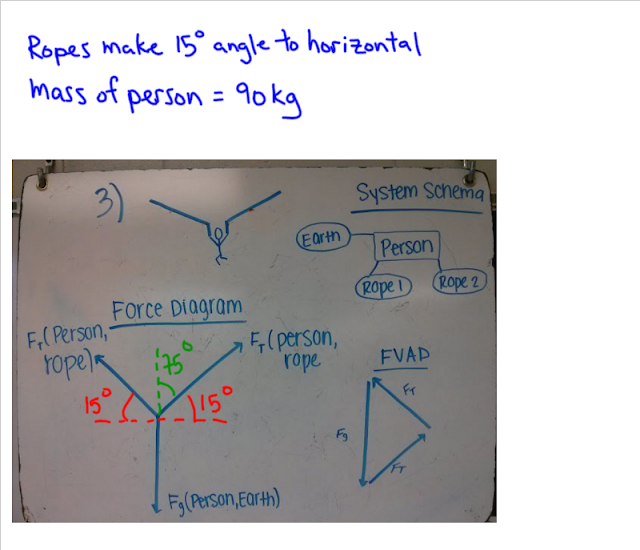 Ropes make 15° angle to horizontal
Mass of person = 90 kg
3)
System Schema
Earth
Person
Rope 1
Rope 2
Force Diagram
F_T(Person, rope)
75°
F_T(person, rope
15°
15°
Fg(Person, Earth)
FVAD
F_T
Fg
F_T